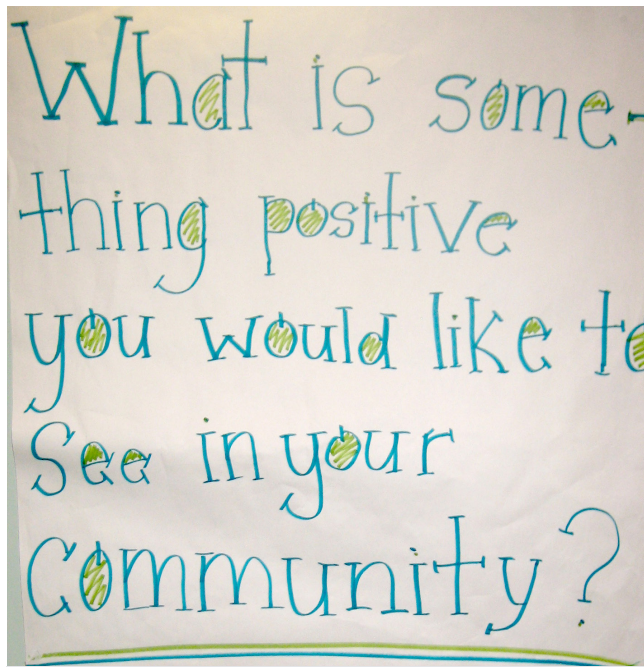 What is some-
thing positive
you would like to
See in your
Community?